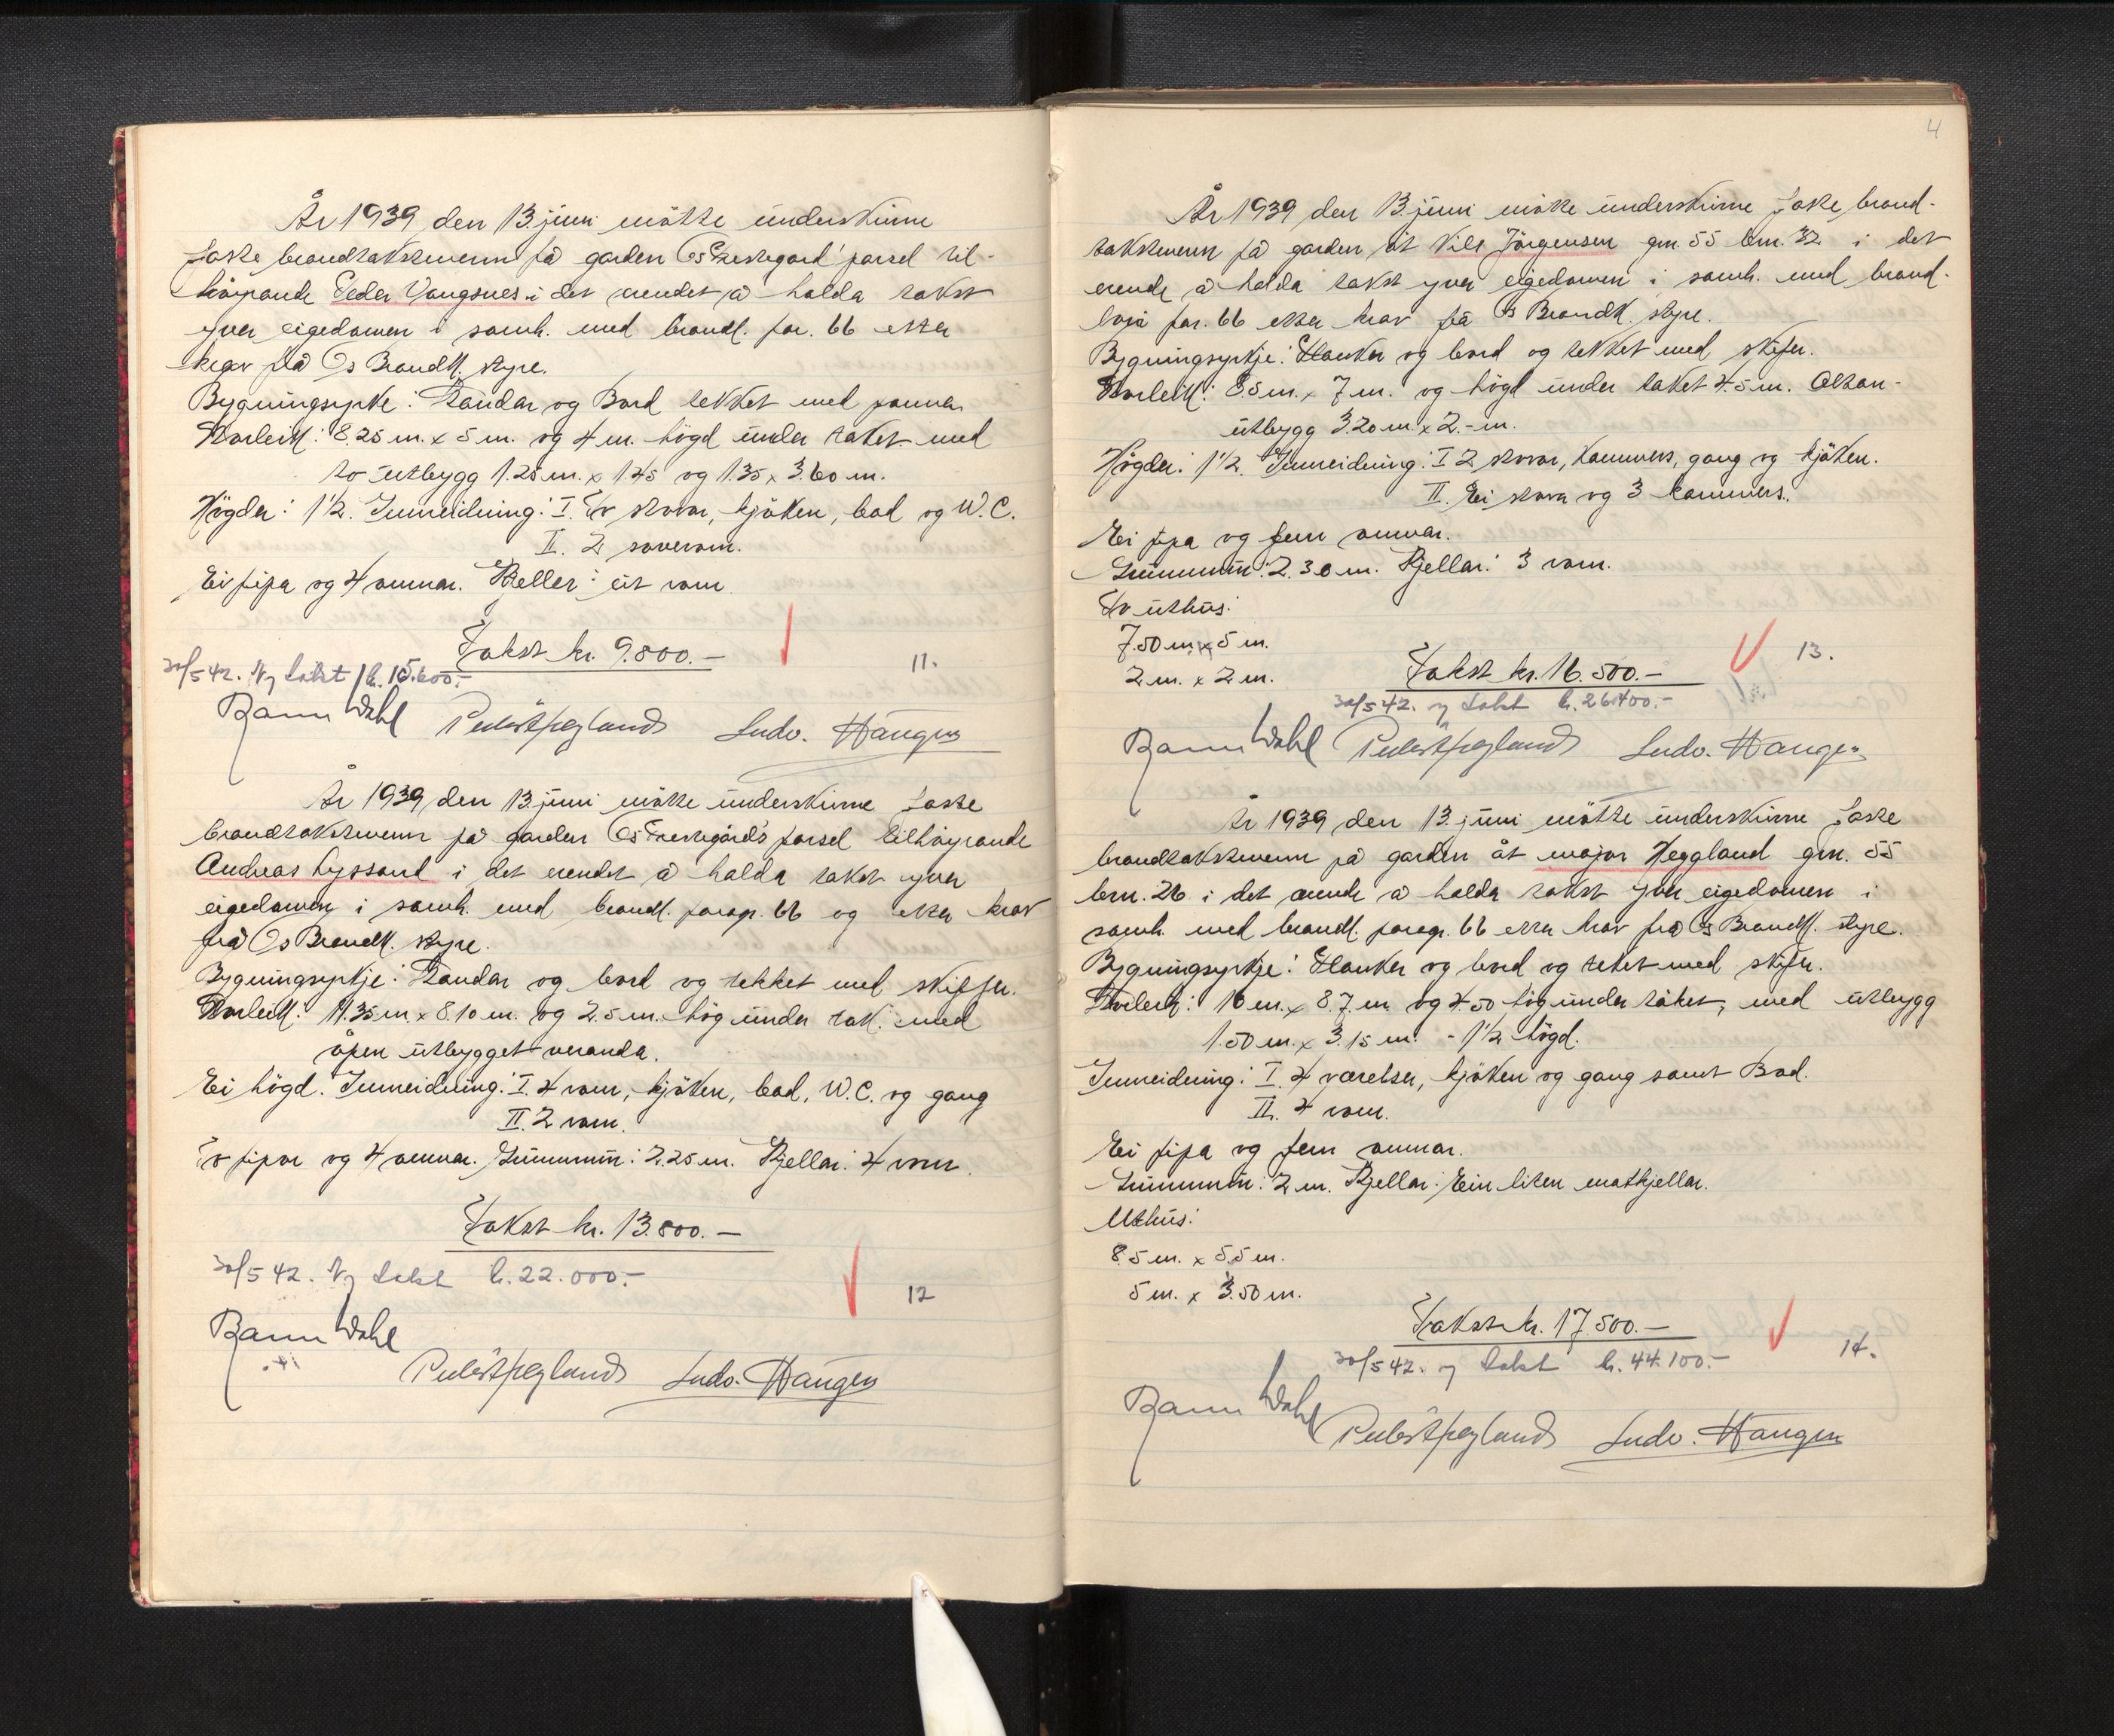 År 1939 den 13. juni møtte underskrivne
faste brandtakstmenn på garden Os Prestegard parsel til-
høyrande Peder Vangsnes i det ærendet å halda takst
yver eigedomen i samh. med brandl. par. 66 etter
krav frå Os Brandk. styre.
Bygningsyrke: Standar og Bord tekket med pannor
Storleik: 8.25 m. x 5 m. og 4 m. högd under taket med
to utbygg 1.25 m. x 1.45 og 1.35 x 3.60 m.
Högder: 1½. Innreidning: I. Tv stovor, kjöken, bad og W.C.
II. 2 soverom.
Ei pipa og 4 omnar. Kjeller: eit rom
Takst kr. 9.800.-
11.
30/5 42. Ny takst kr. 15.600.-
Wahl Ludv. Haugen
År 1939 den 13. juni møtte underskrivne faste
brandtakstmenn på garden Os Prestegård's parsel tilhøyrande
Andreas Lyssand i det erendet å halda takst yver
eigedomen i samh. med brandl. paragr. 66 og etter krav
frå Os Brandk. styre.
Bygningsyrkje: Standar og bord og tekket med skiffer.
Storleik: 11.35 m. x 8.10 m. og 2.5 m. høg under tak. med
open utbygget veranda.
Ei högd. Innreidning: I. 4 rom, kjöken, bad, W.C. og gang
II. 2 rom.
Tv pipor og 4 omnar. Grunnmur: 2.25 m. Kjellar: 4 rom.
Takst kr. 13.800.-
30/5 42. Ny takst kr. 22.000.-
12
Wahl
Ludv. Haugen
4
År 1939 den 13. juni møtte underskrivne faste brand-
takstmenn på garden åt Nils Jörgensen gnr. 55 bnr. 32 i det
erende å halda takst yver eigedomen i samh. med brand-
lova par. 66 etter krav frå Os Brandk. styre.
Bygningsyrkje: Stavker og bord og tekket med skifer.
Storleik: 8.5 m. x 7 m. og högd under taket 4.5 m. Altan-
utbygg 3.20 m. x 2.- m.
Högder: 1½. Innreidning: I 2 stovor, kammers, gang og kjöken.
II. Ei stova og 3 kammers.
Ei pipa og fem omnar.
Grunnmur: 2.30 m. Kjellar: 3 rom.
Tv uthus:
7.50 m. x 5 m.
2 m. x 2 m.
Takst kr. 16.500.-
13.
30/5 42. ny takst kr. 26.400.-
Wahl Ludv. Haugen
År 1939 den 13. juni møtte underskrivne faste
brandtakstmenn på garden åt major Heggland gnr. 55
bnr. 26 i det ærende å halda takst yver eigedomen i
samh. med brandl. paragr. 66 etter krav frå Os Brandk. styre.
Bygningsyrkje: Stavker og bord og teket med skifer.
Storleik: 16 m. x 8.7 m. og 4.50 høg under taket, med utbygg
1.50 m. x 3.15 m. - 1½ högd.
Innreidning: I. 4 værelser, kjöken og gang samt Bad.
II. 4 rom.
Ei pipa og fem omnar.
Grunnmur: 2 m. Kjellar: Ein liten matkjellar.
Uthus:
8.5 m. x 5.5 m.
5 m. x 3.50 m.
Takst kr. 17.500.-
14.
30/5 42. ny takst kr. 44.100.-
Wahl Ludv. Haugen